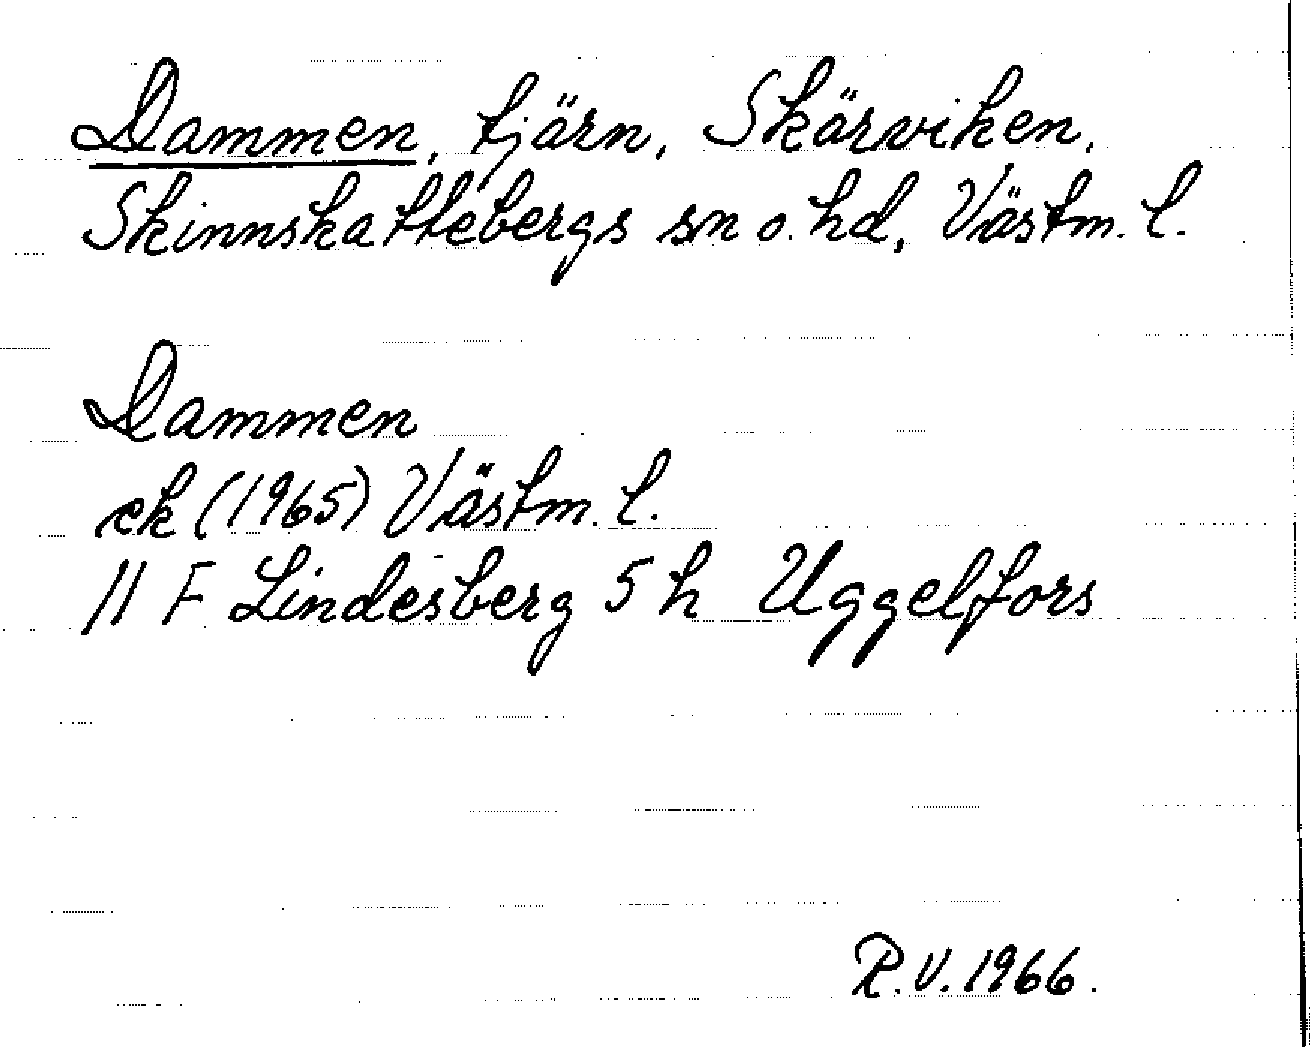 Dammen, tjärn, Skärviken,
Skinnskattebergs sn o. hd, Västm. l.
Dammen
ek (1965) Västm. l.
11 F Lindesberg 5 h Uggelfors
R.V. 1966.